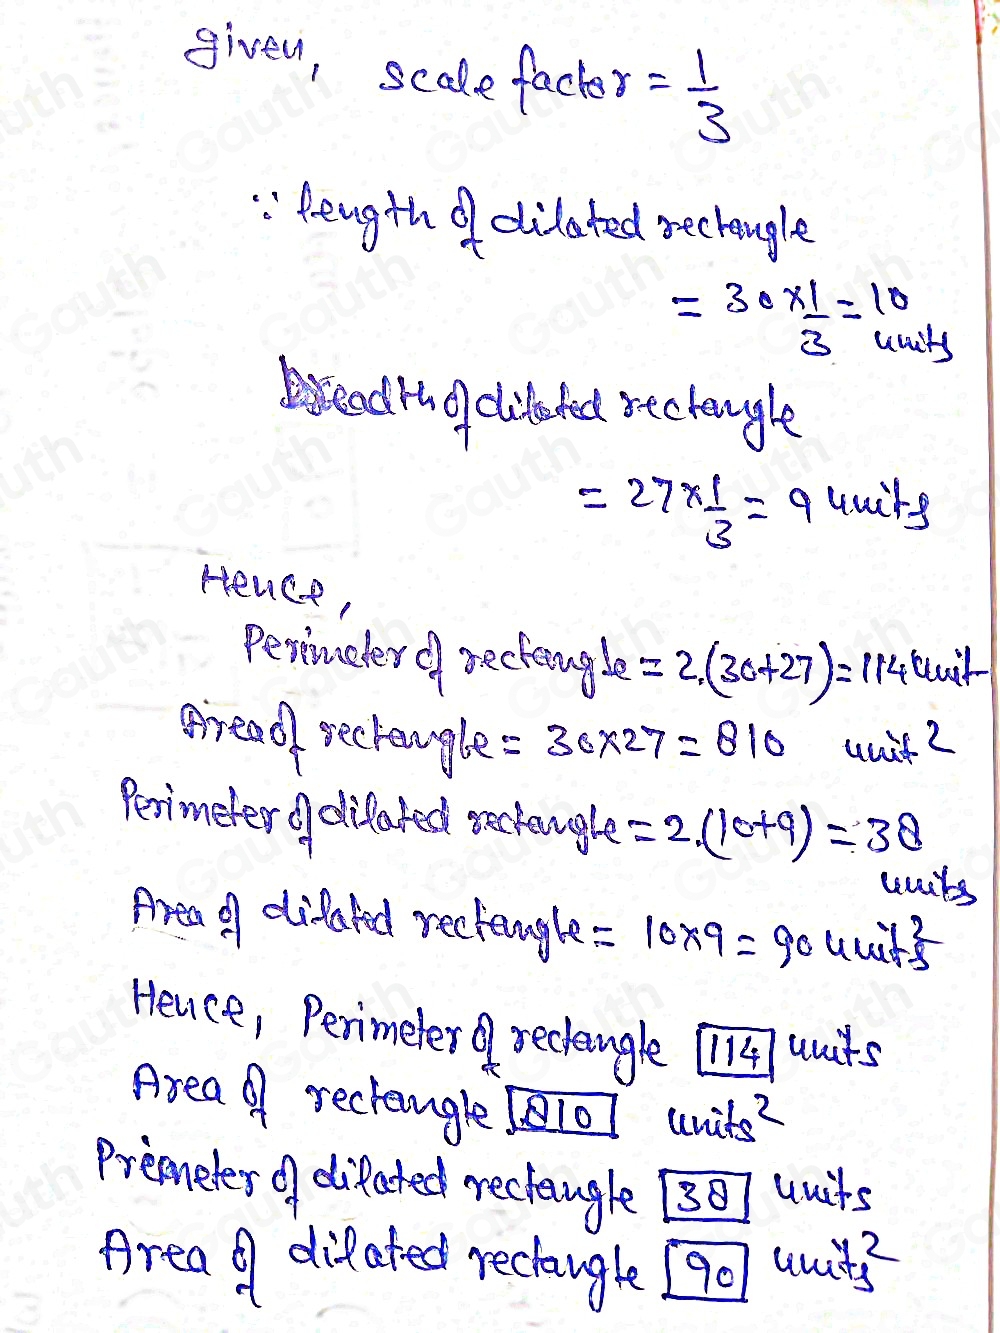 given, scale factor = 1/3
∵ length of dilated rectangle
= 30 × 1/3 = 10 units
breadth of dilated rectangle
= 27 × 1/3 = 9 units
Hence,
Perimeter of rectangle = 2.(30+27) = 114 unit
Area of rectangle = 30×27 = 810 unit²
Perimeter of dilated rectangle = 2.(10+9) = 38 units
Area of dilated rectangle = 10×9 = 90 units²
Hence, Perimeter of rectangle 114 units
Area of rectangle 810 units²
Premeter of dilated rectangle 38 units
Area of dilated rectangle 90 units²
Gauth